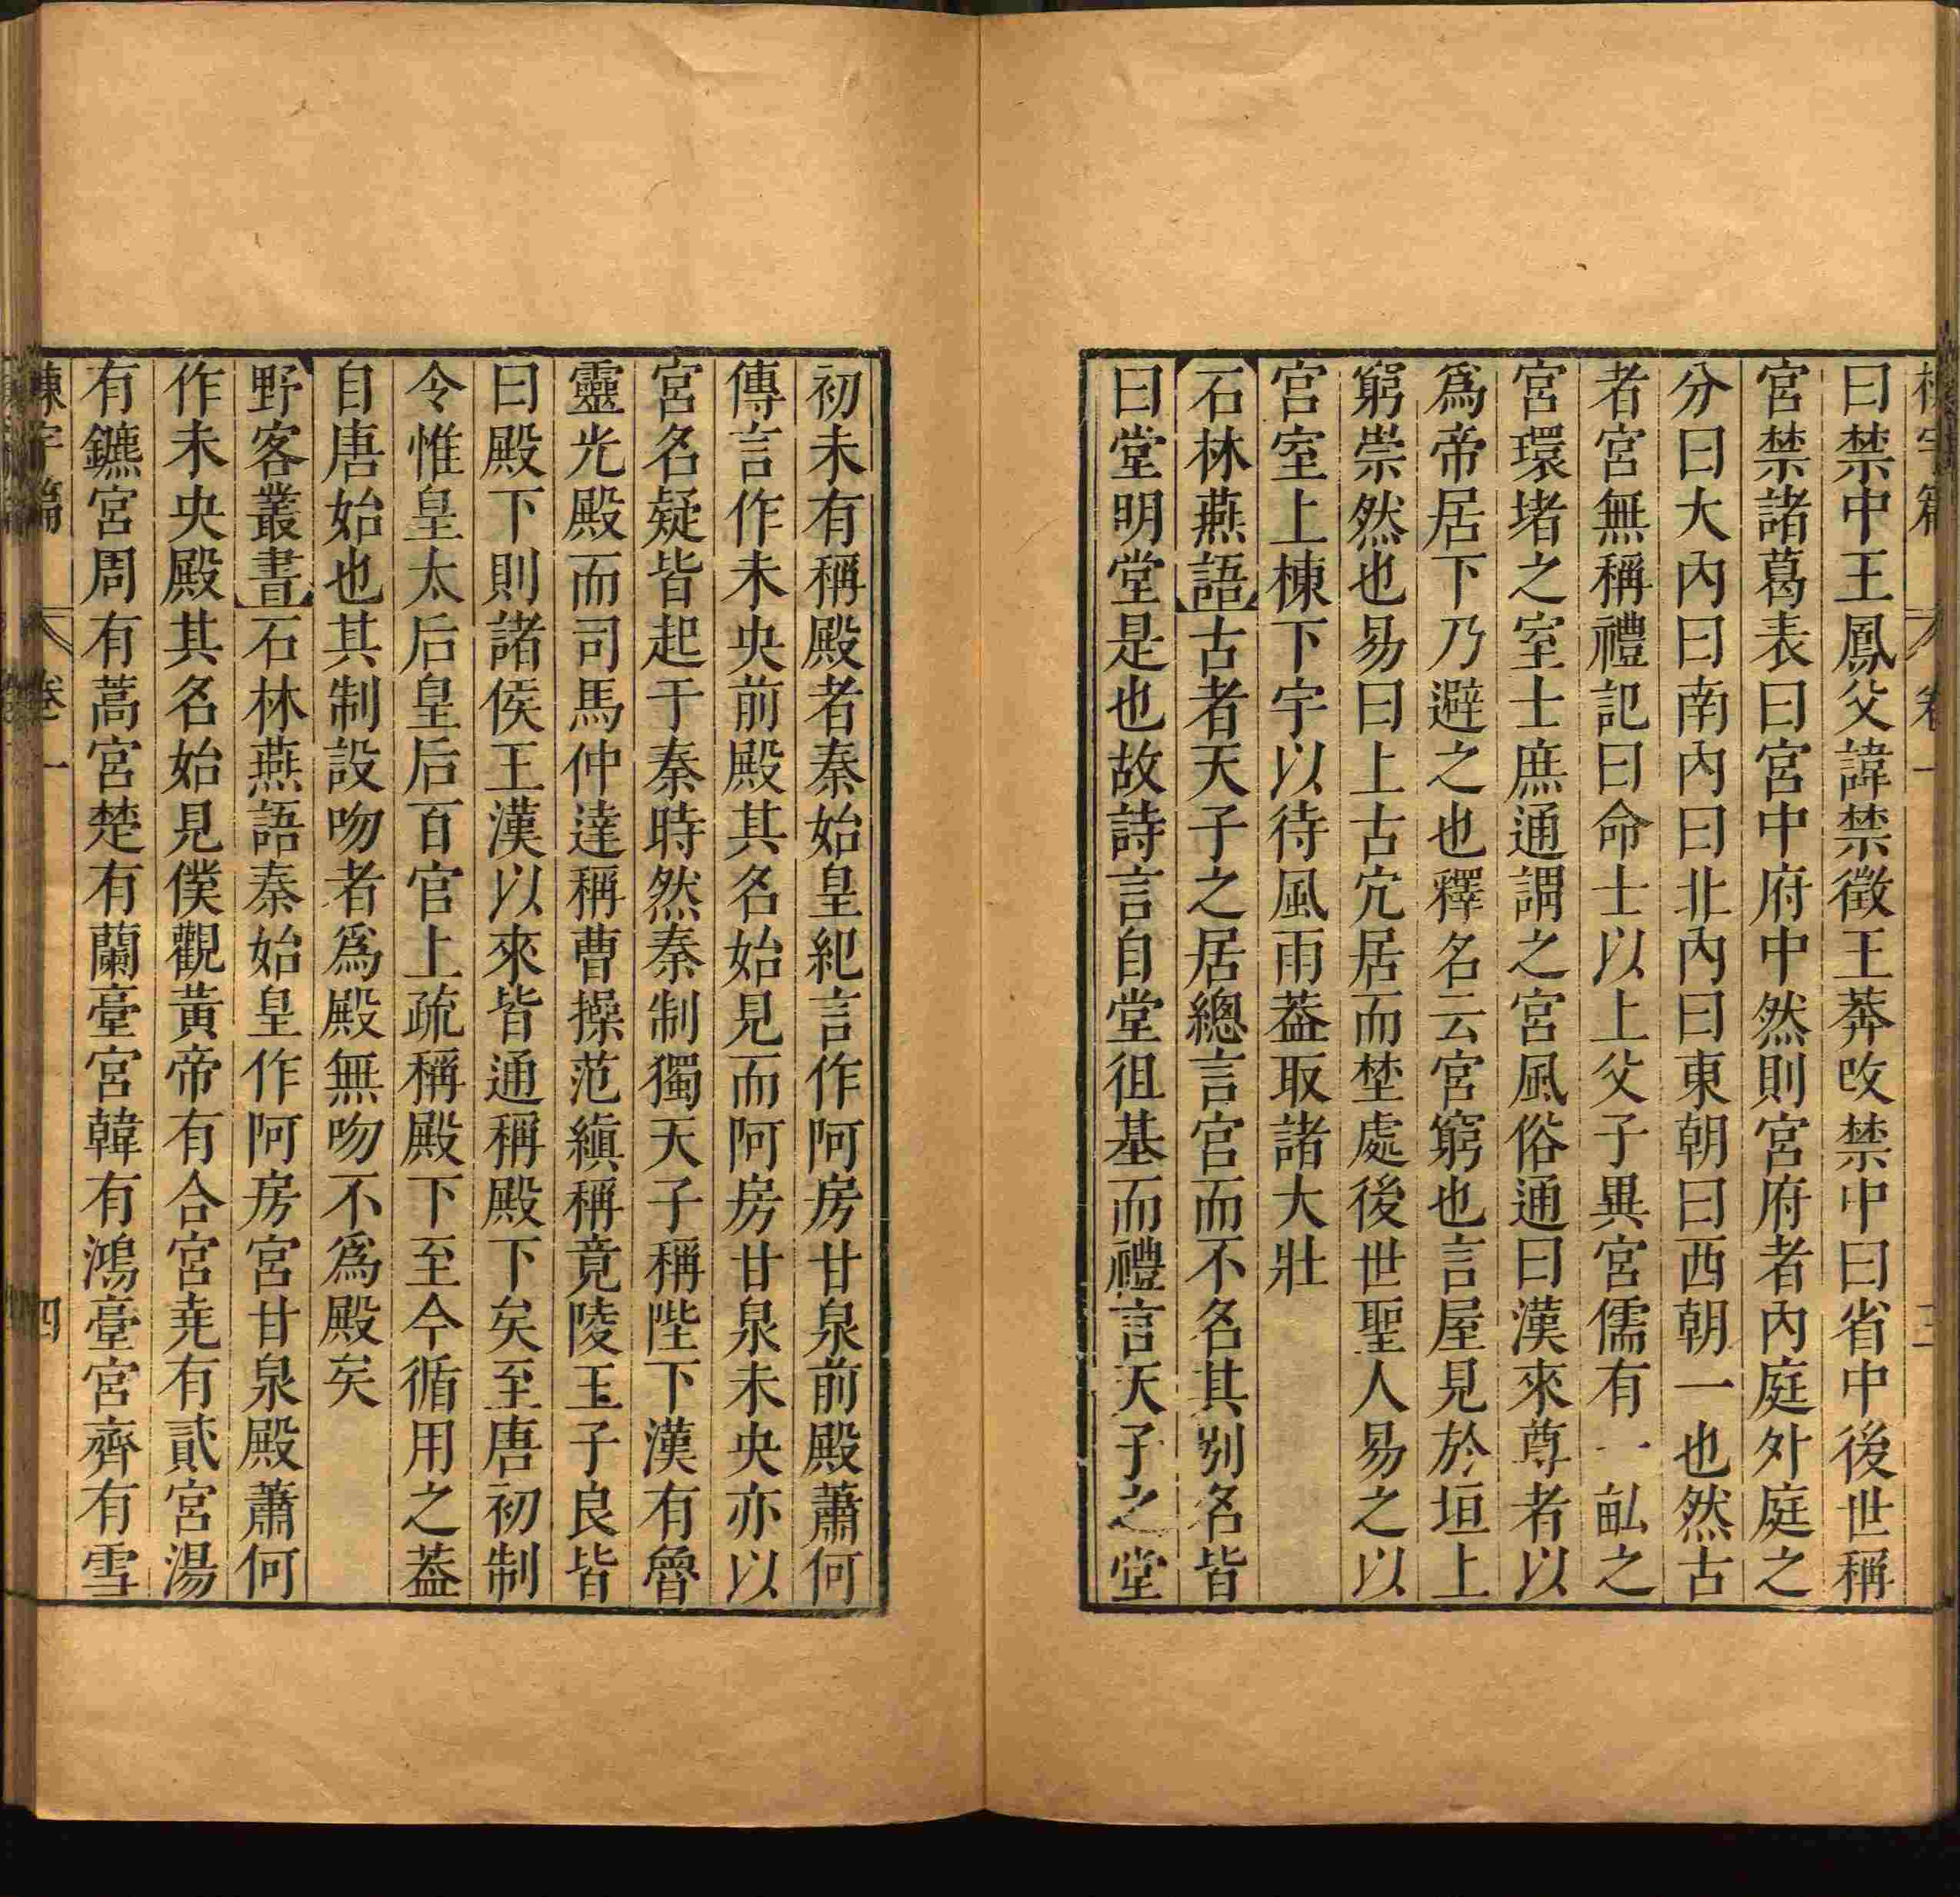 卷一
曰禁中王鳳父諱禁徵王莽改禁中曰省中後世稱
宮禁諸葛表曰宮中府中然則宮府者內庭外庭之
分曰大內曰南內曰北內曰東朝曰西朝一也然古
者宮無稱禮記曰命士以上父子異宮儒有一畝之
宮環堵之室士庶通謂之宮風俗通曰漢來尊者以
爲帝居下乃避之也釋名云宮窮也言屋見於垣上
窮崇然也易曰上古宂居而埜處後世聖人易之以
宮室上棟下宇以待風雨葢取諸大壯
石林燕語古者天子之居總言宮而不名其别名皆
曰堂明堂是也故詩言自堂徂基而禮言天子之堂
初未有稱殿者秦始皇紀言作阿房甘泉前殿蕭何
傳言作未央前殿其名始見而阿房甘泉未央亦以
宮名疑皆起于秦時然秦制獨天子稱陛下漢有魯
靈光殿而司馬仲達稱曹操范縝稱竟陵王子良皆
曰殿下則諸侯王漢以來皆通稱殿下矣至唐初制
令惟皇太后皇后百官上疏稱殿下至今循用之葢
自唐始也其制設吻者爲殿無吻不爲殿矣
野客叢書石林燕語秦始皇作阿房宮甘泉殿蕭何
作未央殿其名始見僕觀黃帝有合宮堯有貳宮湯
有鑣宮周有蒿宮楚有蘭臺宮韓有鴻臺宮齊有雪
棟宇篇 卷一 四